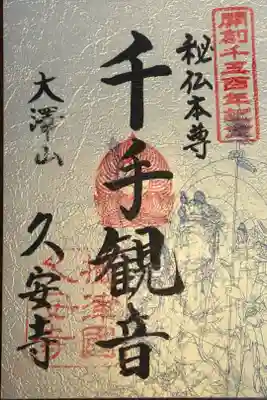 開創千三百年記念
秘仏本尊
千手観音
大澤山
久安寺